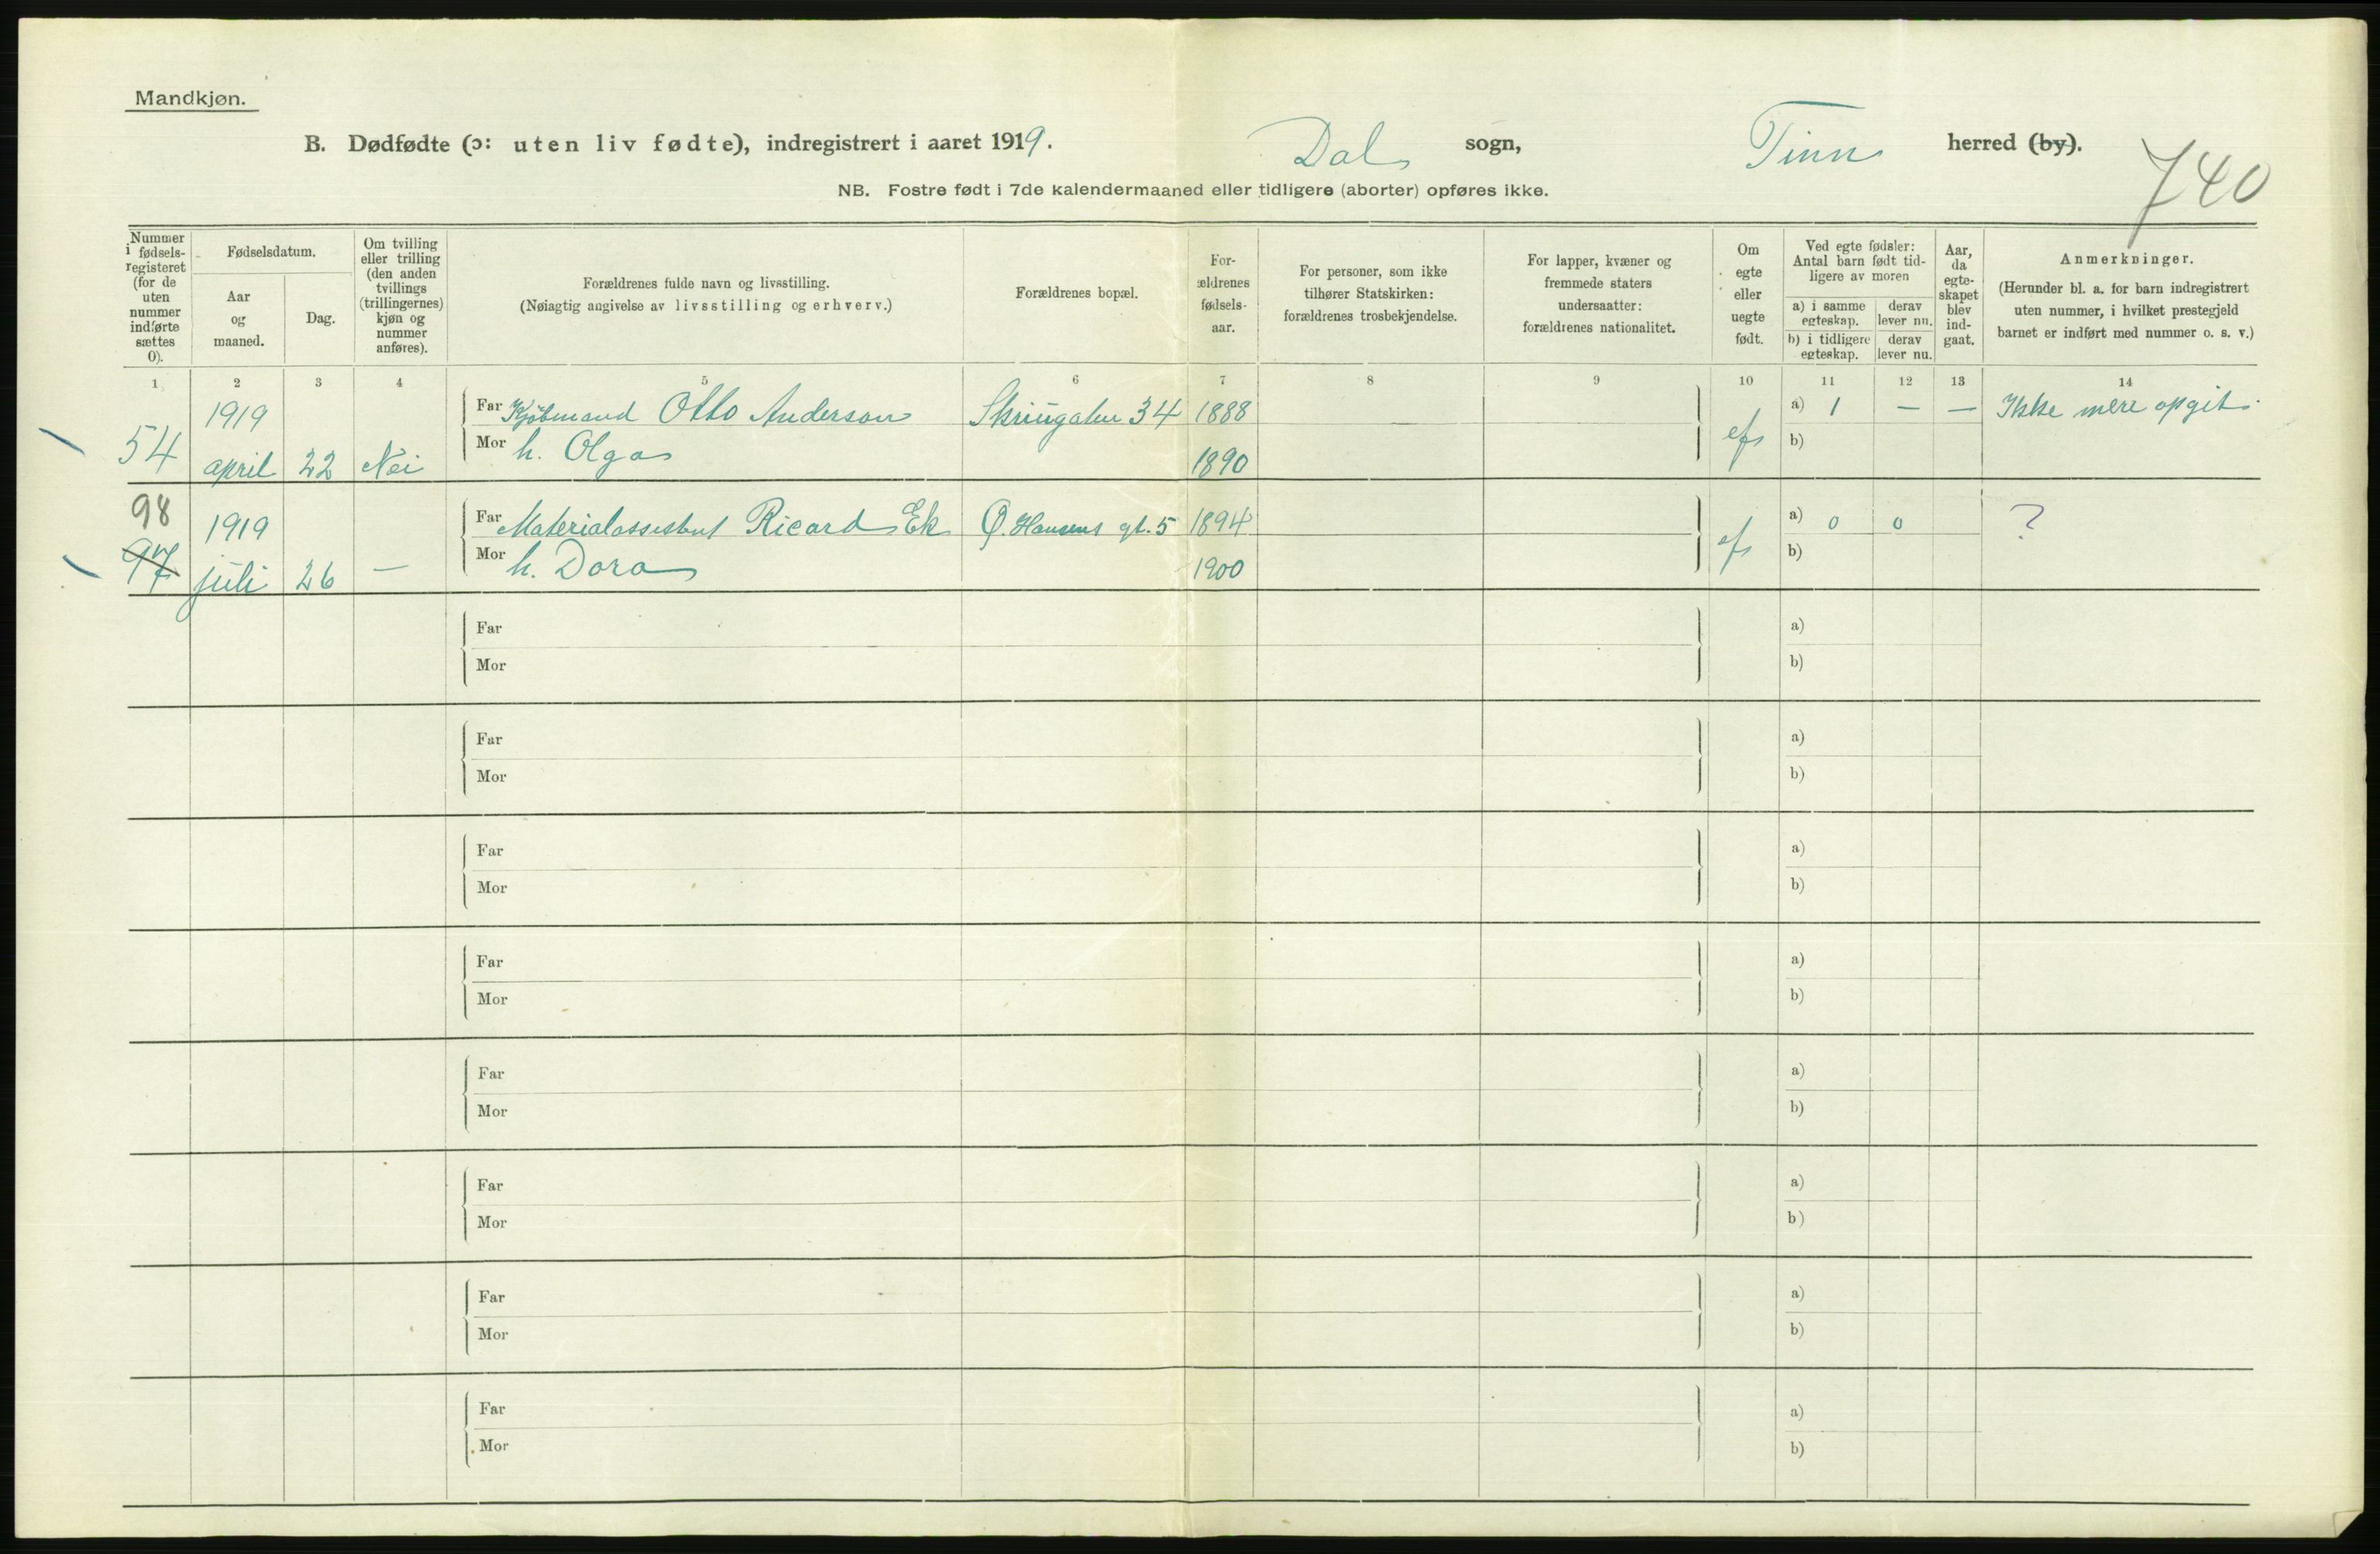 Mandkjøn.
B. Dødfødte (ɔ: uten liv fødte), indregistrert i aaret 1919. Dal sogn, Tinn herred (by).
740
NB. Fostre født i 7de kalendermaaned eller tidligere (aborter) opføres ikke.
Nummer i fødsels-registeret (for de uten nummer indførte sættes 0).
Fødselsdatum.
Aar og maaned.
Dag.
Om tvilling eller trilling (den anden tvillings (trillingernes) kjøn og nummer anføres).
Forældrenes fulde navn og livsstilling.
(Nøiagtig angivelse av livsstilling og erhverv.)
Forældrenes bopæl.
For-ældrenes fødsels-aar.
For personer, som ikke tilhører Statskirken: forældrenes trosbekjendelse.
For lapper, kvæner og fremmede staters undersaatter: forældrenes nationalitet.
Om egte eller uegte født.
Ved egte fødsler: Antal barn født tid-ligere av moren
a) i samme egteskap.
derav lever nu.
b) i tidligere egteskap.
derav lever nu.
Aar, da egte-skapet blev ind-gaat.
Anmerkninger.
(Herunder bl. a. for barn indregistrert uten nummer, i hvilket prestegjeld barnet er indført med nummer o. s. v.)
1 2 3 4 5 6 7 8 9 10 11 12 13 14
1919 Far Kjøbmand Otto Anderson 34 1888 a) 1 — — Ikke mere opgit.
54 april 22 Nei Mor h. Olga 1890 b)
98 1919 Far Materialassistent Ricard Ek Hansens gt. 5 1894 a) 0 0 ?
97 juli 26 — Mor h. Dora 1900 b)
Far a)
Mor b)
Far a)
Mor b)
Far a)
Mor b)
Far a)
Mor b)
Far a)
Mor b)
Far a)
Mor b)
Far a)
Mor b)
Far a)
Mor b)